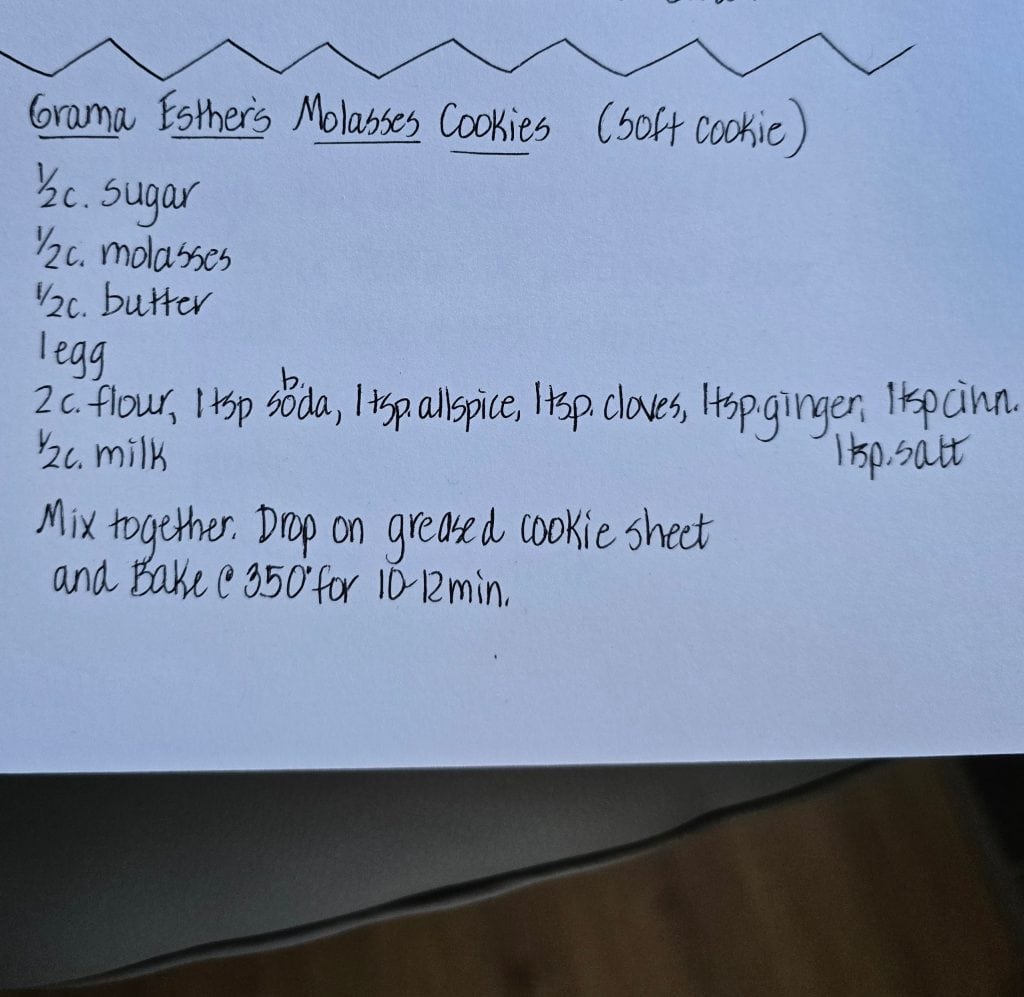 Grama Esther's Molasses Cookies (soft cookie)
½c. sugar
½c. molasses
½c. butter
1 egg
2 c. flour, 1 tsp b. soda, 1 tsp. allspice, 1 tsp. cloves, 1 tsp. ginger, 1 tsp cinn.
½c. milk 1 tsp. salt
Mix together. Drop on greased cookie sheet
and Bake @ 350° for 10-12 min.